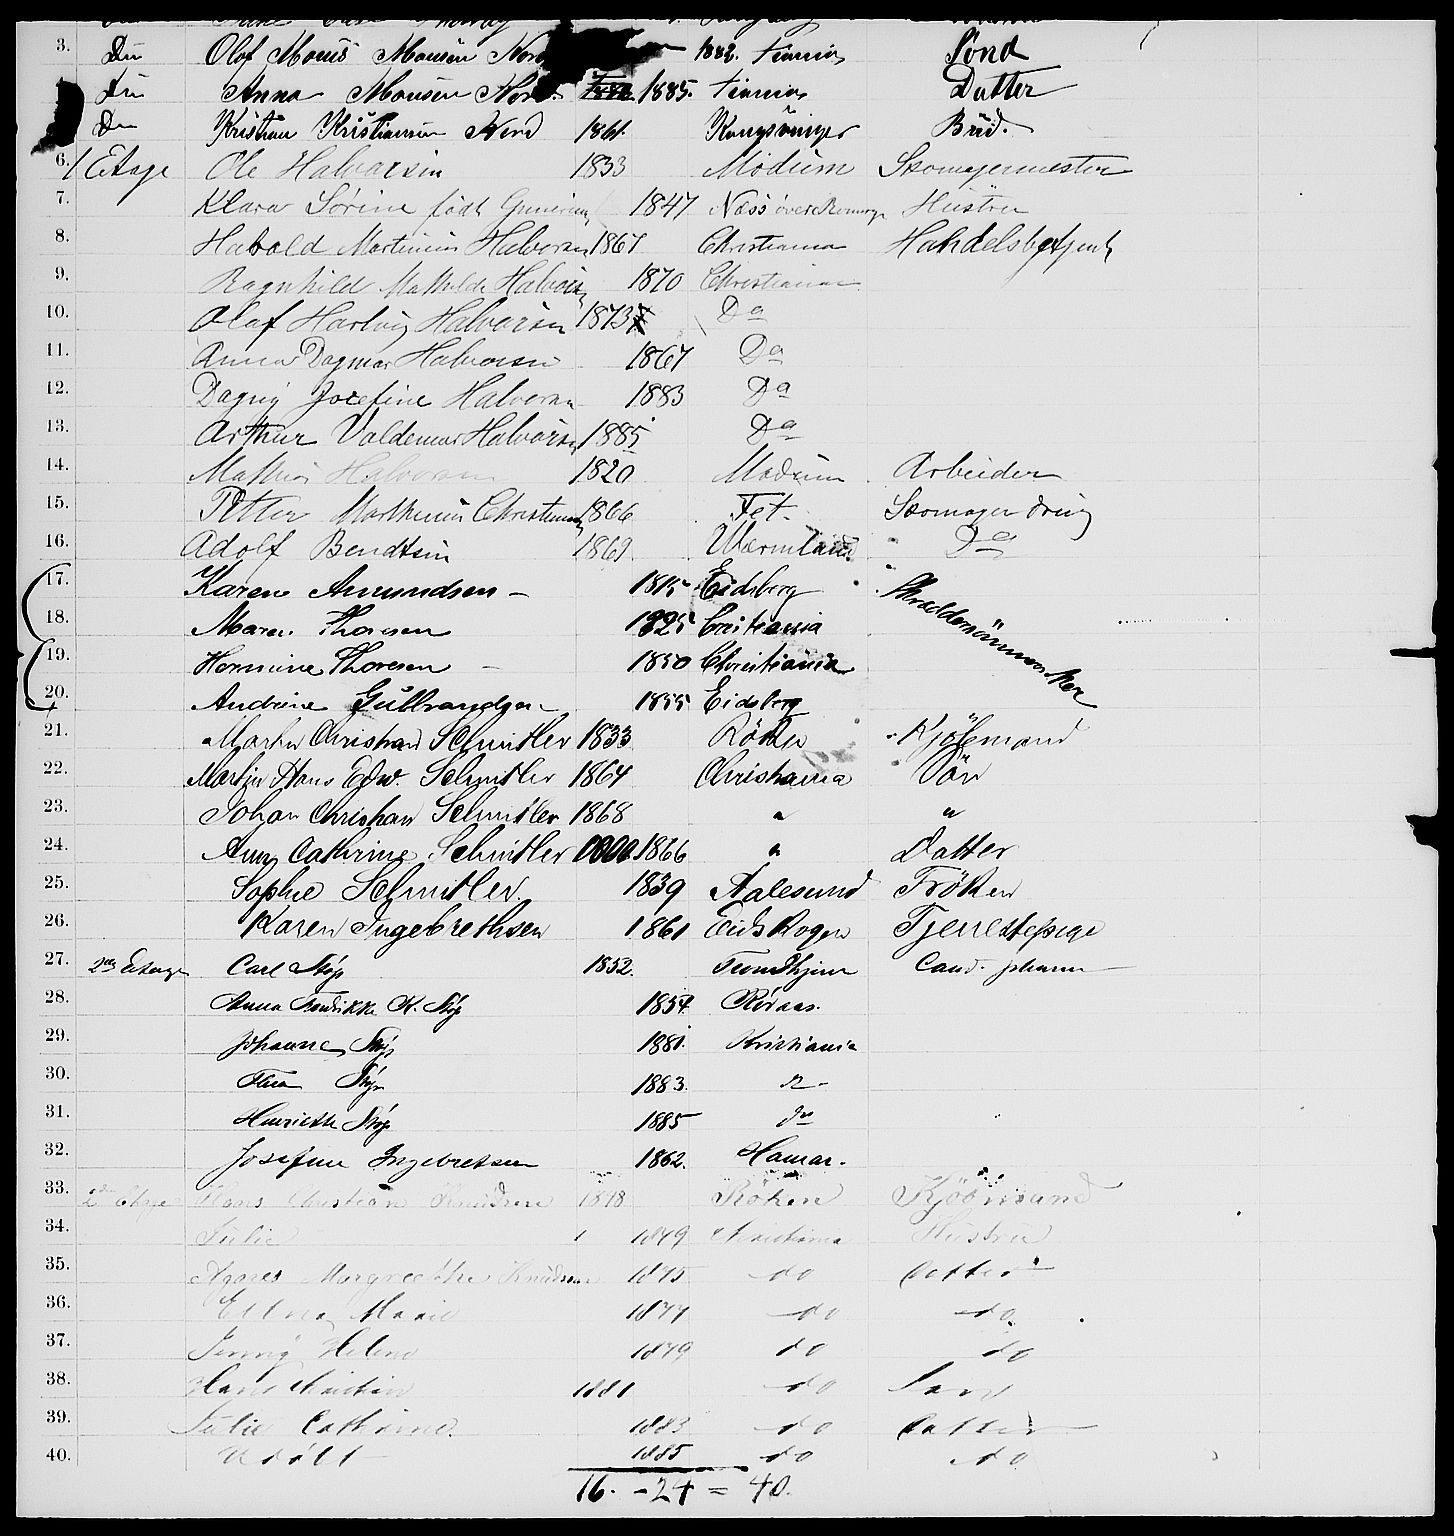 3. Do Olaf Mouus Monsen Nord 1882. Tiania Sönd
Do Anna Monsen Nord. 1885. Tiania Datter
Do Kristian Kristiansen Nord 1861. Kongsvinger Bud.
6. 1 Etage Ole Halvorsen 1833 Modum Skomagermester
7. Klara Sörine födt 1847 Næss Hustru
8. Harald Martinius Halvorsen 1867 Christiania Handelsbetjent
9. Ragnhild Mathilde Halvorsen 1870 Christiania
10. Olaf Hartvig Halvorsen 1873 Do
11. Anna Dagmar Halvorsen 1867 Do
12. Dagny Josefine Halvorsen 1883 Do
13. Arthur Valdemar Halvorsen 1885 Do
14. Mathis Halvorsen 1820 Modum Arbeider
15. Petter Marthinius Christiansen 1866 Fet. Skomager dreng
16. Adolf Bendtsen 1869 Wærmland Do
17. Karen Amundsen - 1815 Eidsberg
18. Maren Thoresen 1825 Cristiania
19. Hermine Thoresen - 1850 Christiania
20. Andrine Gulbrandsen - 1855 Eidsberg
21. Martin Christian Schmitler 1833 Röken Kjöbmand
22. Martin Hans Edw. Schmitler 1864 Christiania Sön
23. Johan Christian Schmitler 1868 " "
24. Anny Cathrine Schmitler 1866 " Datter
25. Sophie Schmitler. 1839 Aalesund Fröken
26. Karen Ingebrethsen 1861 Eidskogen Tjenestepige
27. 2den Etage Carl Höy 1852. Trondhjem Cand. pharm
28. Anna Fredrikke K. Höy 1854. Röraas.
29. Johanne Höy 1881. Kristiania
30. Thea Höy 1883. do
31. Henriette Höy 1885 do
32. Josefine Ingebretsen 1862. Hamar.
33. 2den Etage Hans Christian Knudsen 1848 Röken Kjöbmand
34. Julie " 1849 Kristiania Hustru
35. Agnes Margrethe Knudsen 1875 do Datter
36. Ellna Marie 1877 do do
37. Jenny Helene 1879 do do
38. Hans Kristian 1881 do Sönn
39. Julie Cathrine. 1883 do Datter
40. Udöbt 1885 do do
16. - 24 = 40.